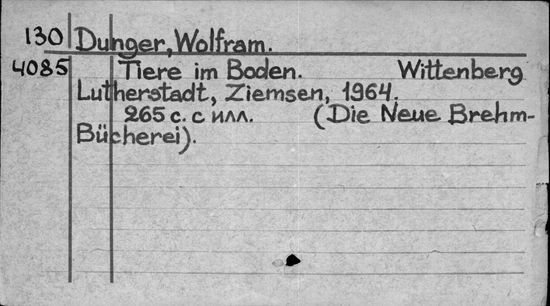 130 Dunger, Wolfram.
4085 Tiere im Boden. Wittenberg
Lutherstadt, Ziemsen, 1964.
265 с. с илл. (Die Neue Brehm-
Bücherei).